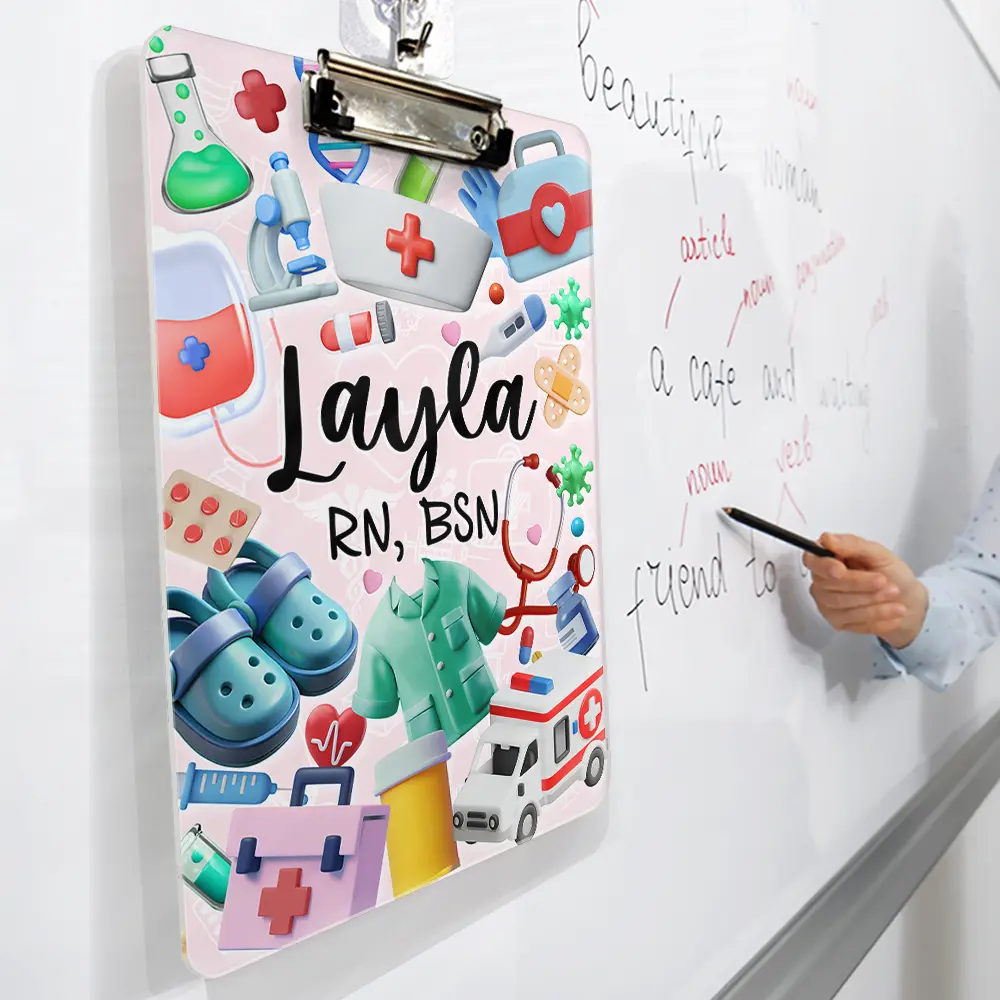 Layla
RN, BSN
beautifue
noun
woman
article
noun
a cafe and waiting
noun
verb
friend to